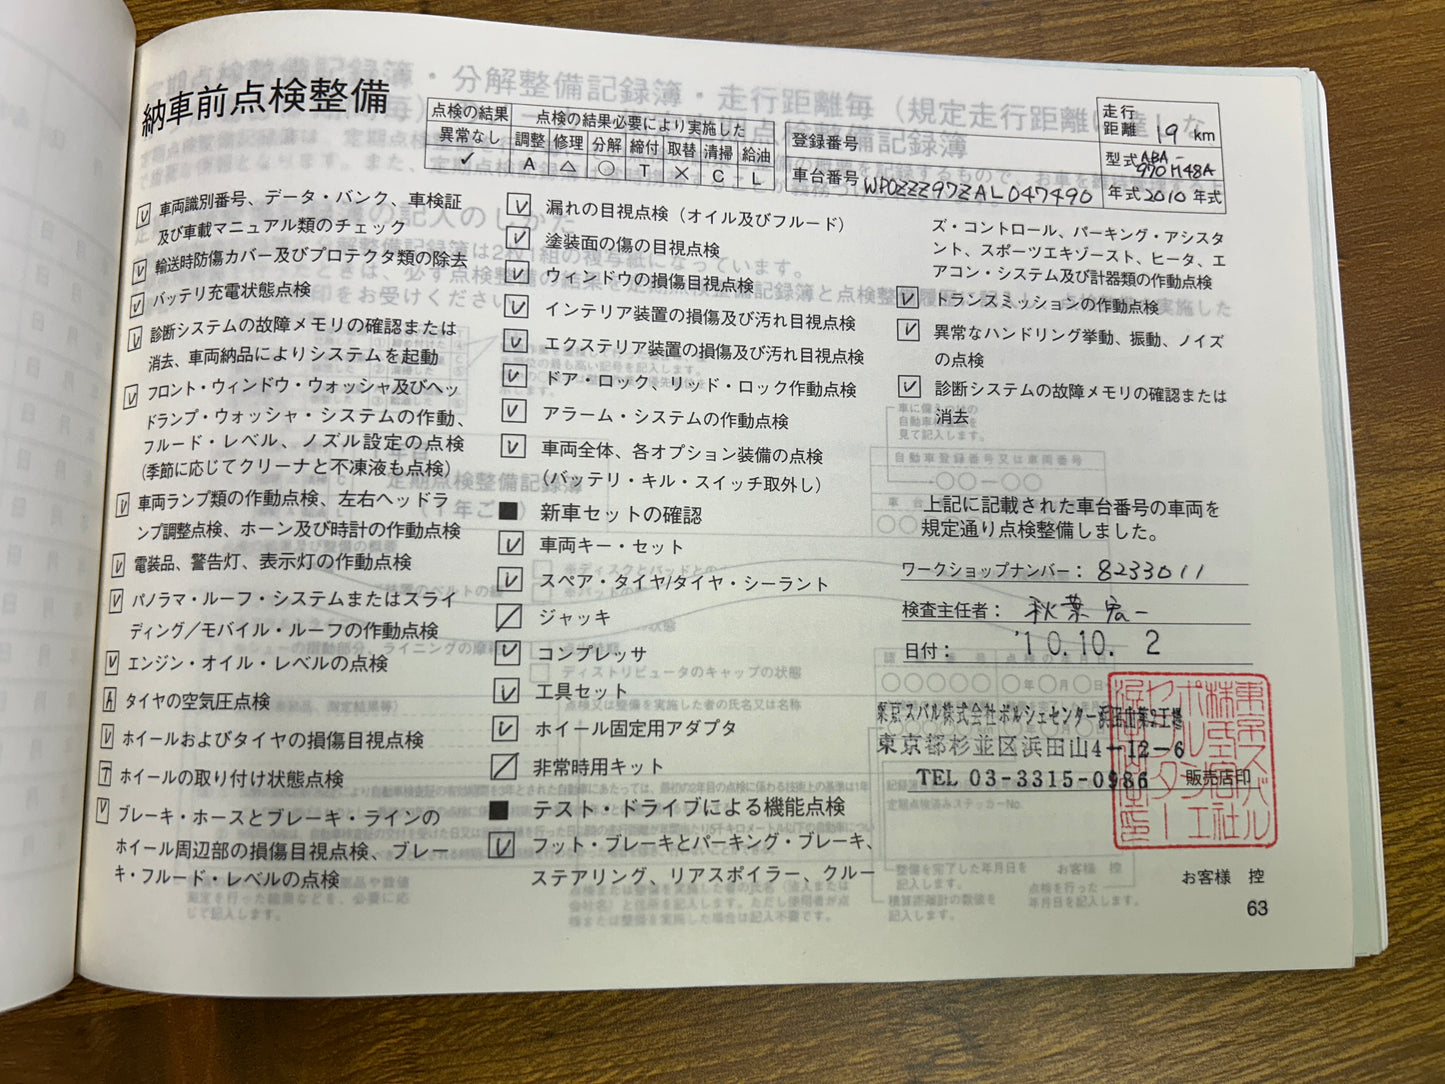 納車前点検整備
点検の結果 点検の結果必要により実施した
異常なし 調整 修理 分解 締付 取替 清掃 給油
✓ A △ ○ T × C L
登録番号
車台番号 WP0ZZZ97ZAL047490
走行距離 19 km
型式 ABA-970M48A
年式 2010 年式
車両識別番号、データ・バンク、車検証
及び車載マニュアル類のチェック
輸送時防傷カバー及びプロテクタ類の除去
バッテリ充電状態点検
診断システムの故障メモリの確認または
消去、車両納品によりシステムを起動
フロント・ウィンドウ・ウォッシャ及びヘッ
ドランプ・ウォッシャ・システムの作動、
フルード・レベル、ノズル設定の点検
(季節に応じてクリーナと不凍液も点検)
車両ランプ類の作動点検、左右ヘッドラ
ンプ調整点検、ホーン及び時計の作動点検
電装品、警告灯、表示灯の作動点検
パノラマ・ルーフ・システムまたはスライ
ディング/モバイル・ルーフの作動点検
エンジン・オイル・レベルの点検
A タイヤの空気圧点検
ホイールおよびタイヤの損傷目視点検
T ホイールの取り付け状態点検
ブレーキ・ホースとブレーキ・ラインの
ホイール周辺部の損傷目視点検、ブレー
キ・フルード・レベルの点検
漏れの目視点検(オイル及びフルード)
塗装面の傷の目視点検
ウィンドウの損傷目視点検
インテリア装置の損傷及び汚れ目視点検
エクステリア装置の損傷及び汚れ目視点検
ドア・ロック、リッド・ロック作動点検
アラーム・システムの作動点検
車両全体、各オプション装備の点検
(バッテリ・キル・スイッチ取外し)
■ 新車セットの確認
車両キー・セット
スペア・タイヤ/タイヤ・シーラント
ジャッキ
コンプレッサ
工具セット
ホイール固定用アダプタ
非常時用キット
■ テスト・ドライブによる機能点検
フット・ブレーキとパーキング・ブレーキ、
ステアリング、リアスポイラー、クルー
ズ・コントロール、パーキング・アシスタ
ント、スポーツエキゾースト、ヒータ、エ
アコン・システム及び計器類の作動点検
トランスミッションの作動点検
異常なハンドリング挙動、振動、ノイズ
の点検
診断システムの故障メモリの確認または
消去
上記に記載された車台番号の車両を
規定通り点検整備しました。
ワークショップナンバー: 8233011
検査主任者: 秋葉 宏一
日付: '10.10. 2
東京スバル株式会社ポルシェセンター浜田山第2工場
東京都杉並区浜田山4-12-6
TEL 03-3315-0986
販売店印
お客様 控
63